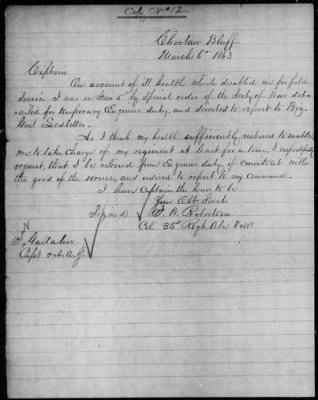 Copy No 12
Choctaw Bluff
March 6" 1863
Captain
On account of ill health, which disabled me for field
service I was on Jan 5" by special order of the Secty of War det
ailed for temporary Engineer duty, and directed to report to Brig
Genl Leadbetter.
As I think my health sufficiently restored to enable
me to take charge of my regiment at least for a time, I respectfully
request, that I be relieved from Engineer duty if consistent with
the good of the service, and ordered to report to my command.
I have Captain the honor to be
Your Obt Servt
Signed E. B. Robertson
Col 35" Regt Ala Vols
Capt & A. A. G.